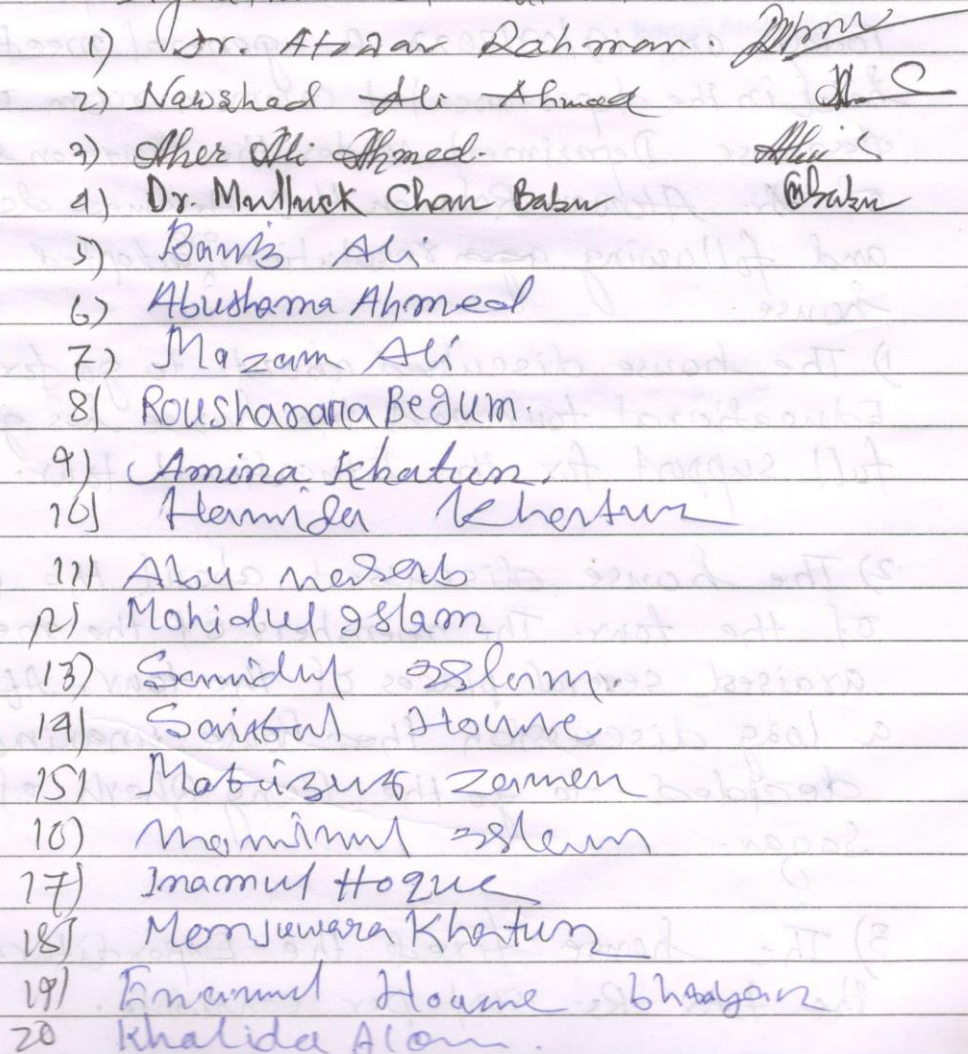 1) Dr. Atowar Rahman.
2) Nawshad Ali Ahmed
3) Aher Ali Ahmed.
4) Dr. Mulluck Chan Babu
5) Ali
6) Abushama Ahmed
7) Mazam Ali
8) Roushanara Begum.
9) Amina Khatun.
10) Hamida Khatun
11) Abu
12) Mohidul Islam
13) Samidul Islam
14) Saiful Hoque
15) Mafizur zaman
16) Mominul Islam
17) Inamul Hoque
18) Monjuwara Khatun
19) Enamul Hoque bhuyan
20 Khalida Alom.